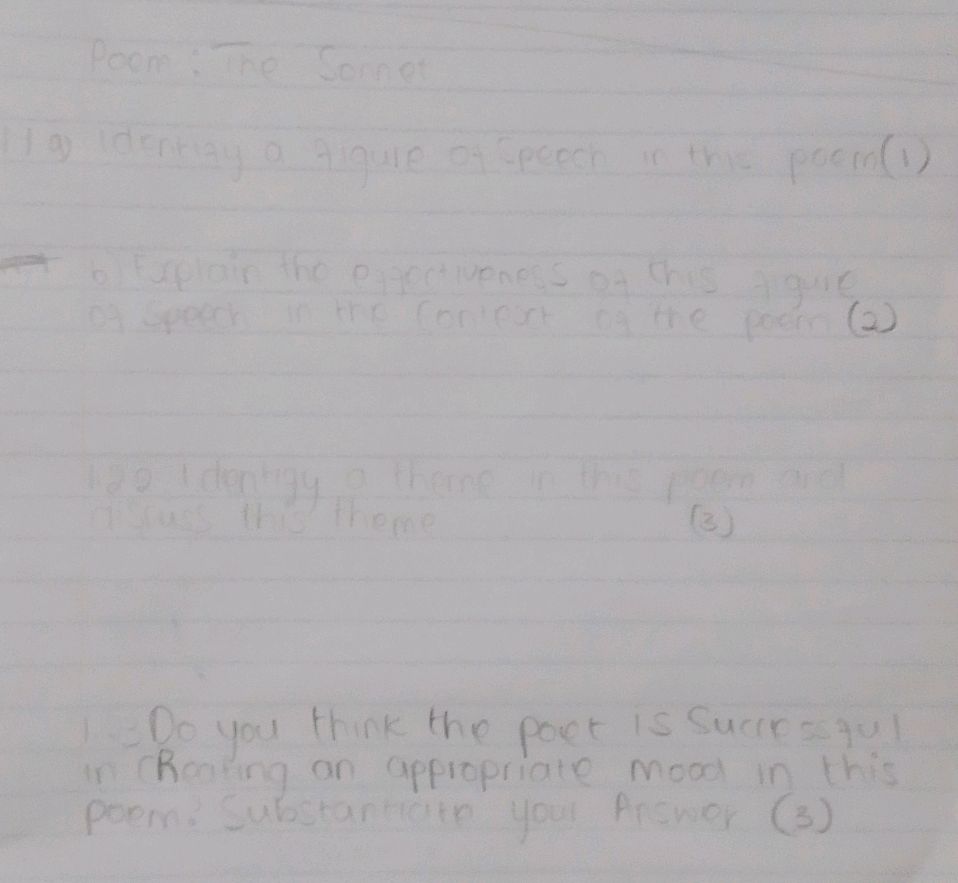 Poem: The Sonnet
1.1 a) Identify a figure of speech in this poem (1)
b) Explain the effectiveness of this figure
of speech in the context of the poem (2)
Identify a theme in this poem and
discuss this theme (3)
Do you think the poet is Successful
in CReating an appropriate mood in this
poem? Substantiate your Answer (3)